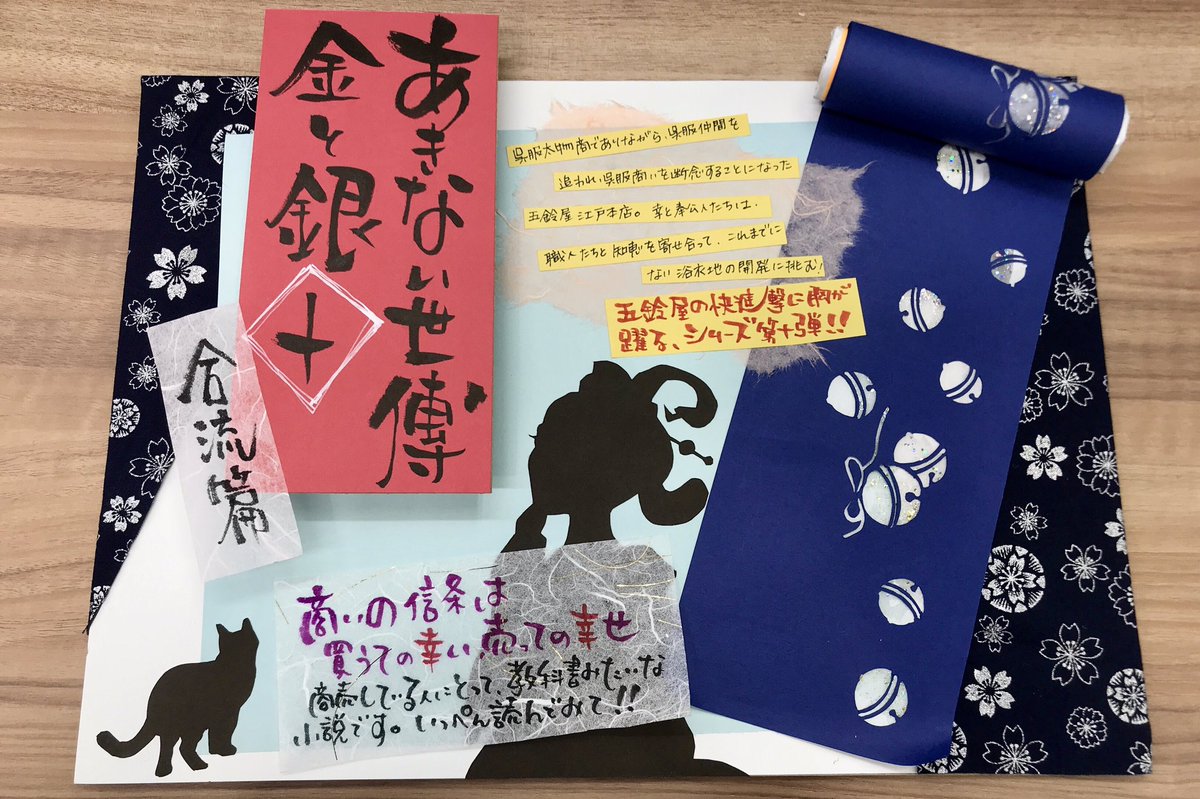 あきない世傳
金と銀
十
合流篇
呉服太物商でありながら、呉服仲間を
追われ、呉服商いを断念することになった
五鈴屋江戸本店。幸と奉公人たちは、
職人たちと知恵を寄せ合って、これまでに
ない浴衣地の開発に挑む！
五鈴屋の快進撃に胸が
躍る、シリーズ第十弾!!
商いの信条は
買うての幸い、売っての幸せ
商売している人にとって、教科書みたいな
小説です。いっぺん読んでみて!!